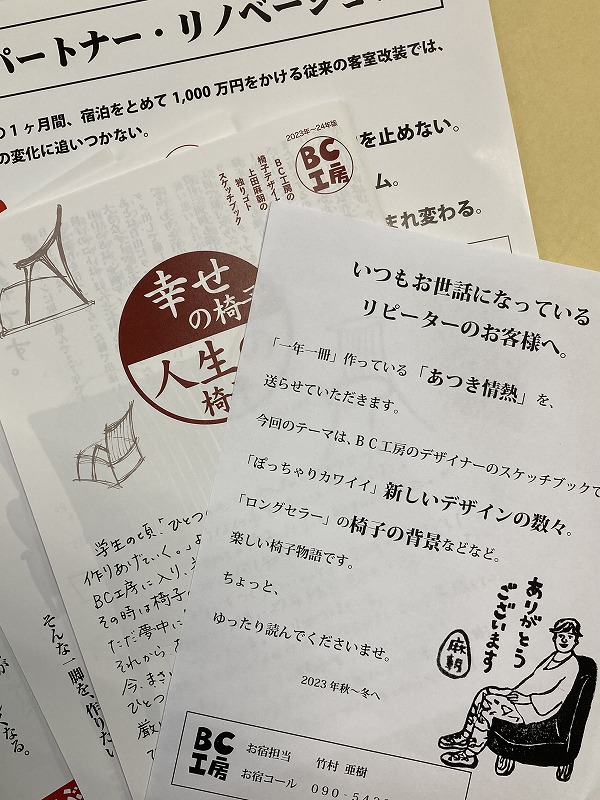 パートナー・リノベーション
の1ヶ月間、宿泊をとめて1,000万円をかける従来の客室改装では、
の変化に追いつかない。
を止めない。
ム。
まれ変わる。
2023年〜24年版
BC
工房
BC工房の
椅子デザイナー
上田麻朝の
独りゴト
スケッチブック
幸せ
の椅子
人生の
椅
学生の頃、「ひとつ
作りあげていく。」
BC工房に入り、
その時は椅子
ただ夢中に
それから、
今、まさ
ひとつ
厳し
そんな一脚を、作りたい
くなる。
いつもお世話になっている
リピーターのお客様へ。
「一年一冊」作っている「あつき情熱」を、
送らせていただきます。
今回のテーマは、BC工房のデザイナーのスケッチブックで
「ぽっちゃりカワイイ」新しいデザインの数々。
「ロングセラー」の椅子の背景などなど。
楽しい椅子物語です。
ちょっと、
ゆったり読んでくださいませ。
2023年秋〜冬へ
ありがとう
ございます
麻朝
BC
工房
お宿担当 竹村 亜樹
お宿コール 090-542